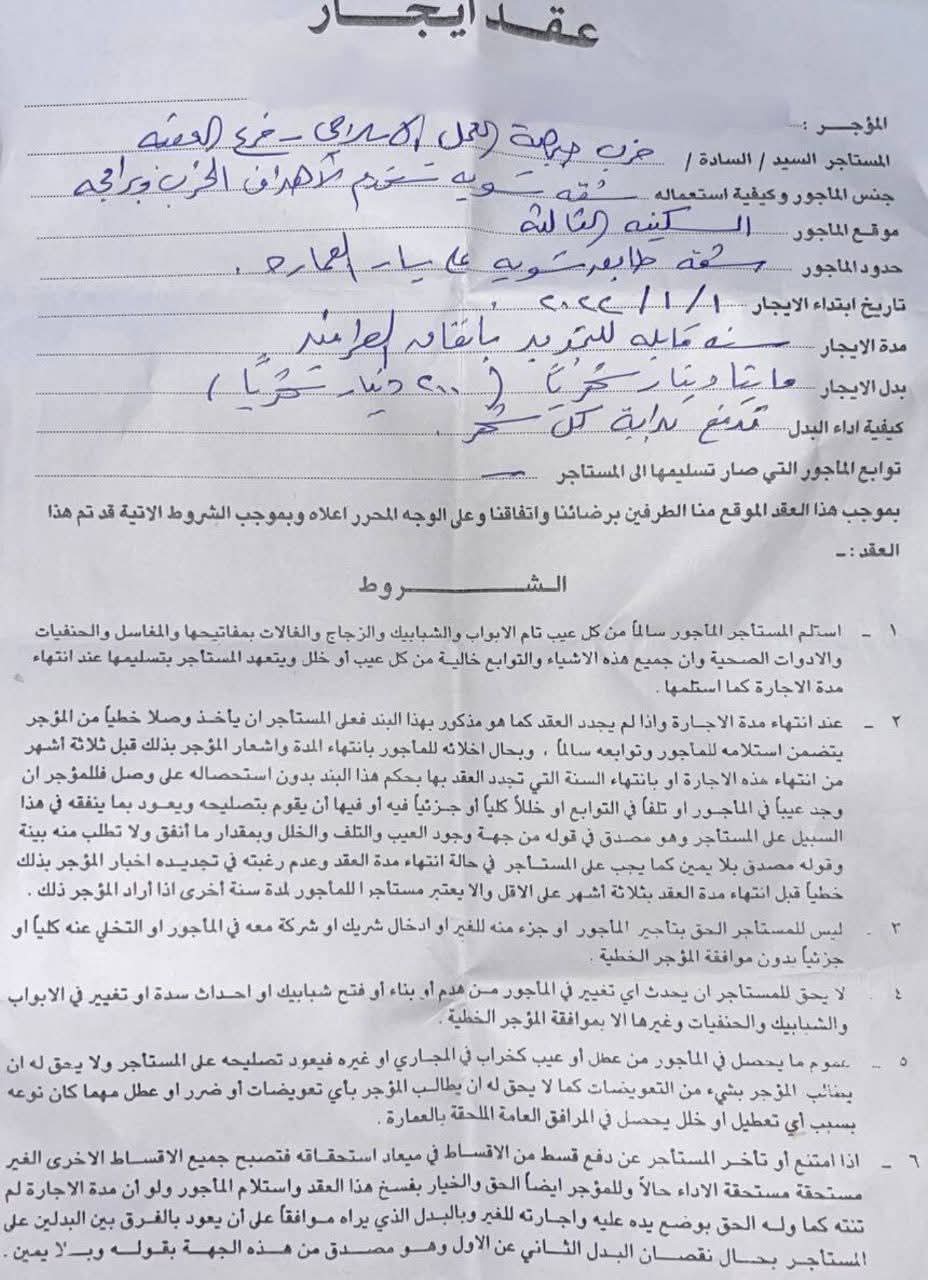 عقد ايجار
المؤجر :
المستاجر السيد / السادة / حزب جبهة العمل الاسلامي - فرع العقبه
جنس المأجور وكيفية استعماله شقه تسويه تستخدم لأهداف الحزب وبرامجه
موقع المأجور السكنيه الثالثة
حدود المأجور شقه طابق تسويه على يسار العماره .
تاريخ ابتداء الايجار ٢٠٢٢/١/١ .
مدة الايجار سنه قابله للتجديد باتفاق الطرفين
بدل الايجار مايتا دينار شهرياً ( ٢٠٠ دينار شهرياً )
كيفية اداء البدل تدفع بداية كل شهر .
توابع المأجور التي صار تسليمها الى المستاجر —
بموجب هذا العقد الموقع منا الطرفين برضائنا واتفاقنا وعلى الوجه المحرر اعلاه وبموجب الشروط الاتية قد تم هذا
العقد : ـ
الشروط
١ ـ استلم المستأجر المأجور سالماً من كل عيب تام الابواب والشبابيك والزجاج والغالات بمفاتيحها والمغاسل والحنفيات
والادوات الصحية وان جميع هذه الاشياء والتوابع خالية من كل عيب أو خلل ويتعهد المستأجر بتسليمها عند انتهاء
مدة الاجارة كما استلمها .
٢ ـ عند انتهاء مدة الاجارة واذا لم يجدد العقد كما هو مذكور بهذا البند فعلى المستأجر ان يأخذ وصلا خطياً من المؤجر
يتضمن استلامه للمأجور وتوابعه سالماً ، وبحال اخلائه للمأجور بانتهاء المدة واشعار المؤجر بذلك قبل ثلاثة أشهر
من انتهاء هذه الاجارة او بانتهاء السنة التي تجدد العقد بها بحكم هذا البند بدون استحصاله على وصل فللمؤجر ان
وجد عيباً في المأجور او تلفاً في التوابع او خللاً كلياً أو جزئياً فيه او فيها أن يقوم بتصليحه ويعود بما ينفقه في هذا
السبيل على المستأجر وهو مصدق في قوله من جهة وجود العيب والتلف والخلل وبمقدار ما أنفق ولا تطلب منه بينة
وقوله مصدق بلا يمين كما يجب على المستأجر في حالة انتهاء مدة العقد وعدم رغبته في تجديده اخبار المؤجر بذلك
خطياً قبل انتهاء مدة العقد بثلاثة أشهر على الاقل والا يعتبر مستأجرا للمأجور لمدة سنة أخرى اذا أراد المؤجر ذلك .
٣ . ليس للمستأجر الحق بتأجير المأجور او جزء منه للغير او ادخال شريك او شركة معه في المأجور او التخلي عنه كلياً او
جزئياً بدون موافقة المؤجر الخطية .
٤ . لا يحق للمستأجر ان يحدث اي تغيير في المأجور من هدم أو بناء أو فتح شبابيك او احداث سدة او تغيير في الابواب
والشبابيك والحنفيات وغيرها الا بموافقة المؤجر الخطية .
٥ ـ عموم ما يحصل في المأجور من عطل أو عيب كخراب في المجاري او غيره فيعود تصليحه على المستأجر ولا يحق له ان
يطالب المؤجر بشيء من التعويضات كما لا يحق له ان يطالب المؤجر بأي تعويضات أو ضرر او عطل مهما كان نوعه
بسبب أي تعطيل أو خلل يحصل في المرافق العامة الملحقة بالعمارة .
٦ ـ اذا امتنع أو تأخر المستأجر عن دفع قسط من الاقساط في ميعاد استحقاقه فتصبح جميع الاقساط الاخرى الغير
مستحقة مستحقة الاداء حالاً وللمؤجر ايضاً الحق والخيار بفسخ هذا العقد واستلام المأجور ولو أن مدة الاجارة لم
تنته كما وله الحق بوضع يده عليه واجارته للغير وبالبدل الذي يراه موافقاً على أن يعود بالفرق بين البدلين على
المستأجر بحال نقصان البدل الثاني عن الاول وهو مصدق من هذه الجهة بقوله وبلا يمين .